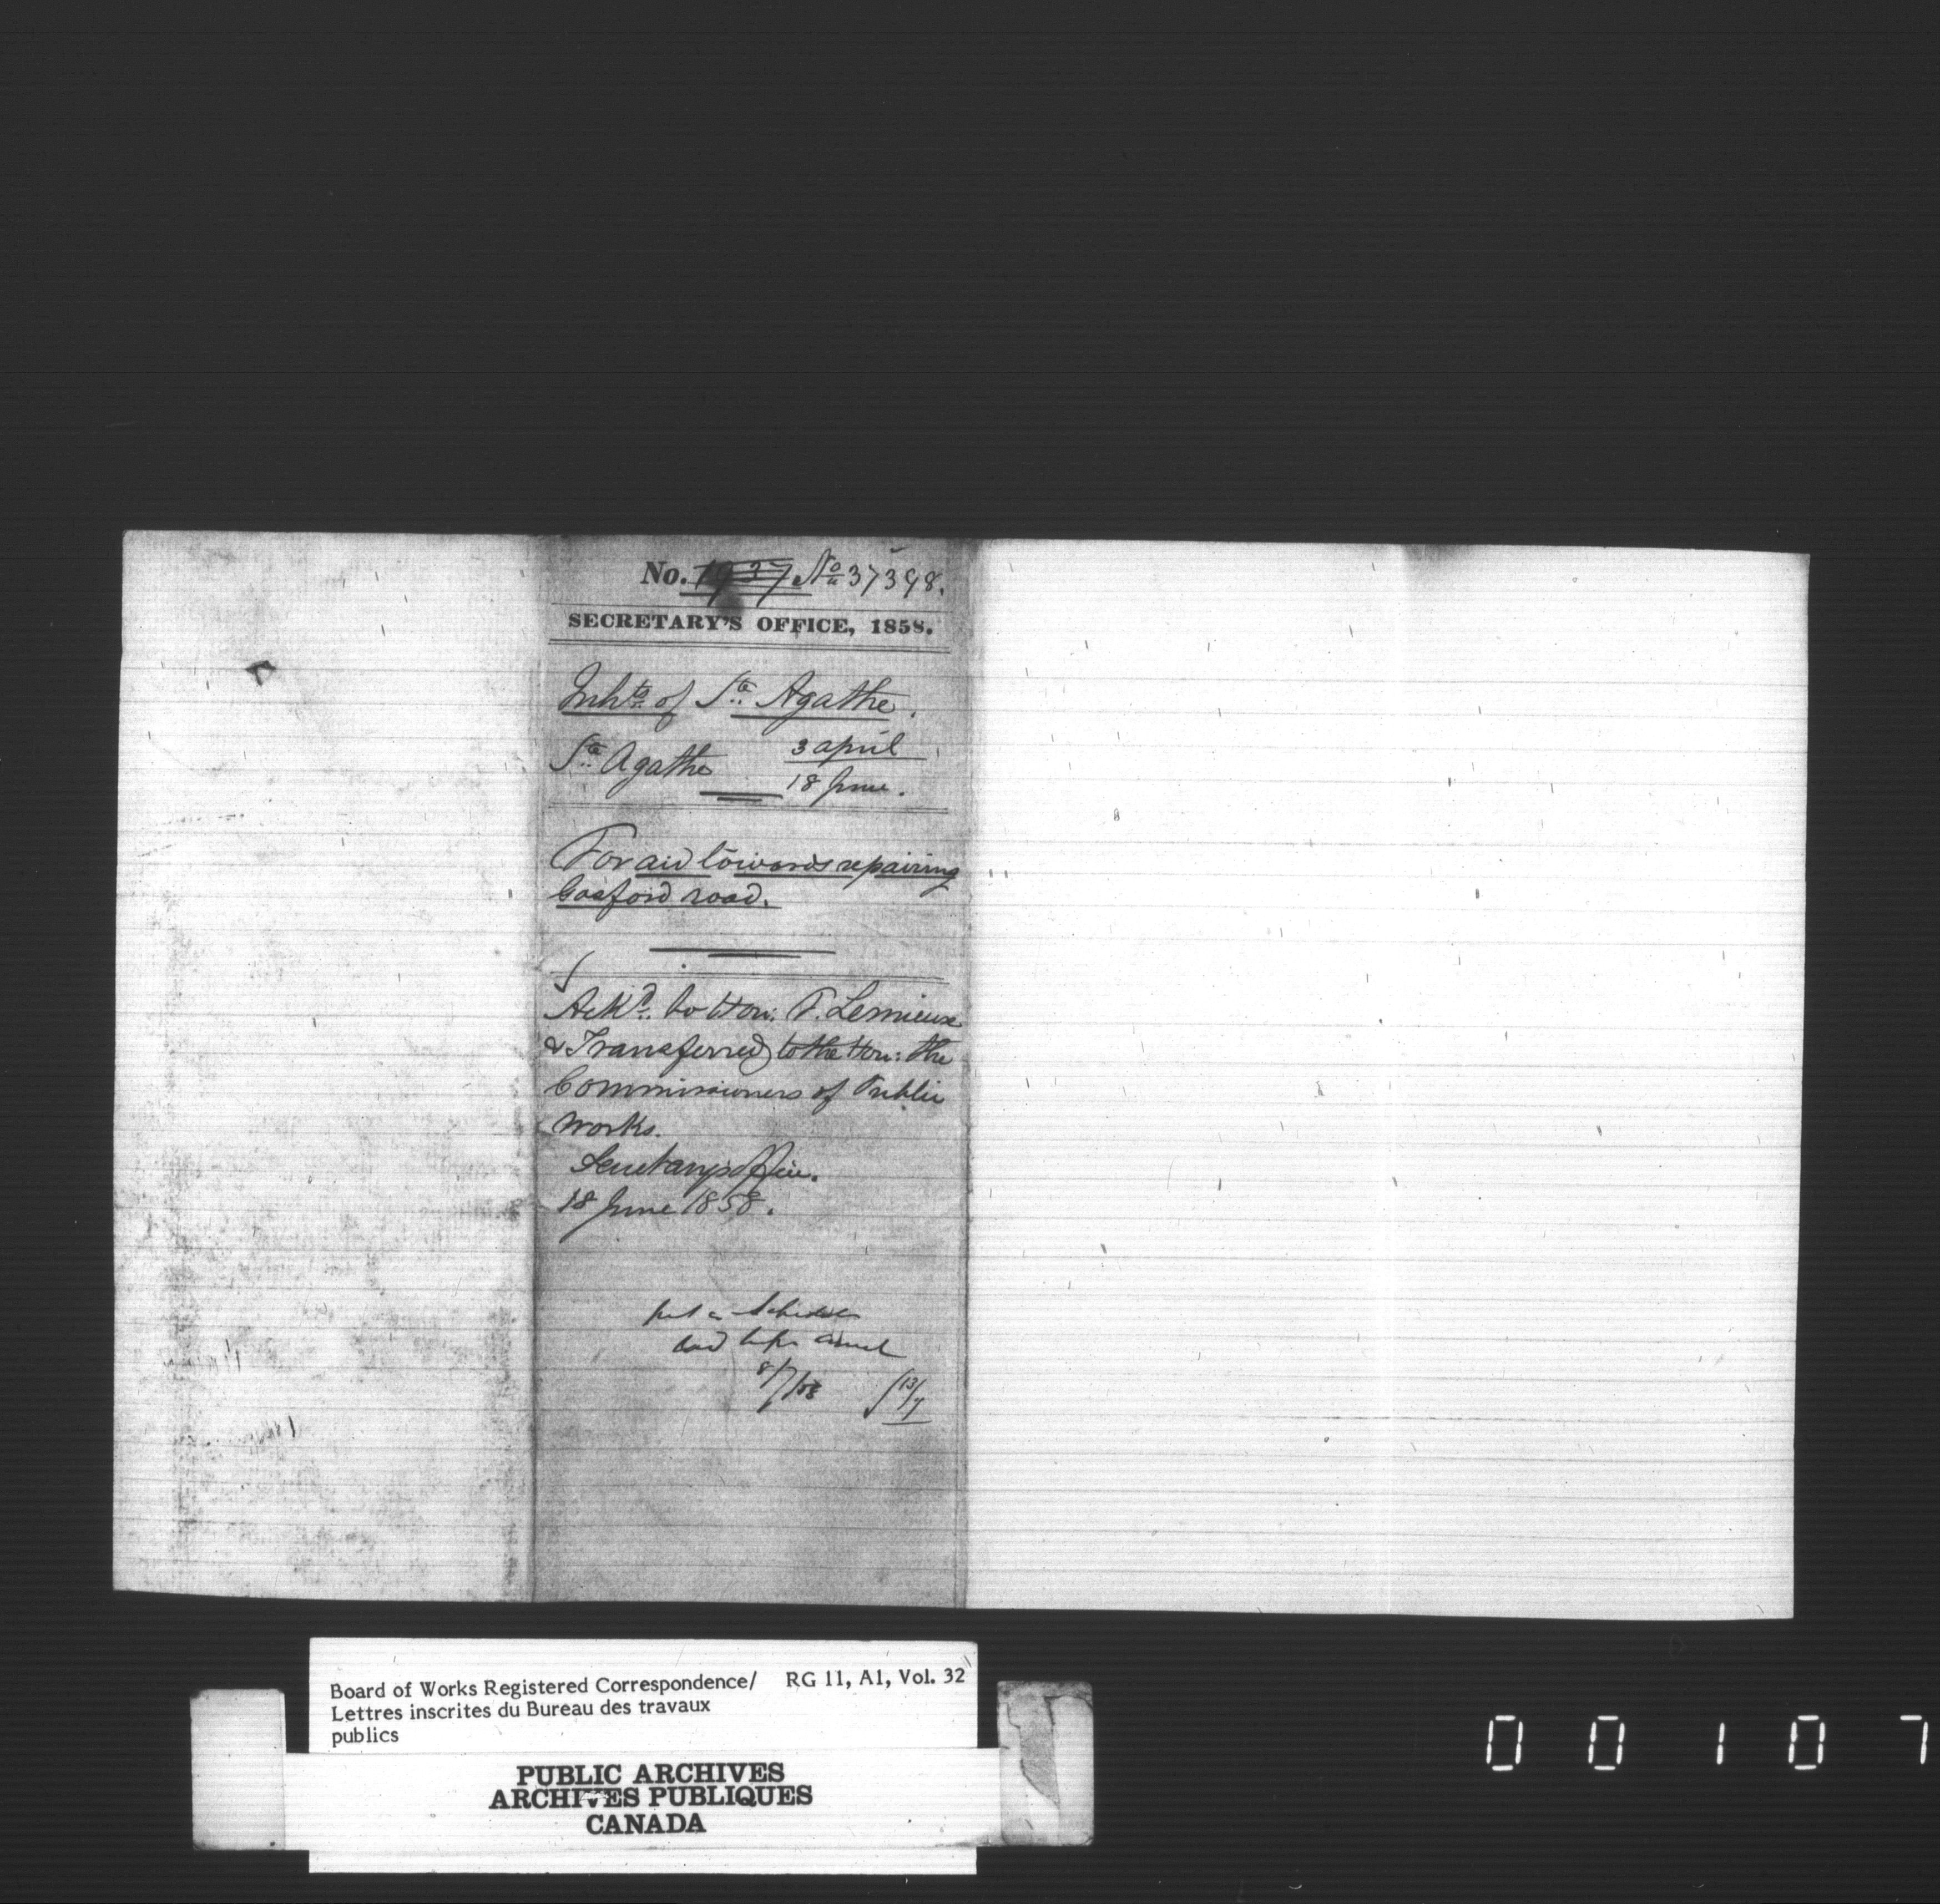 No. 1937 No 37398.
SECRETARY'S OFFICE, 1858.
Inhts of Ste Agathe.
Ste Agathe 3 april
18 June.
For aid towards repairing
Gosford road.
Ackd. to Hon: F. Lemieux
& Transferred to the Hon: the
Commissioners of Public
Works.
Secretary's office.
18 June 1858.
put in Schedule
8/7/58 13/7
Board of Works Registered Correspondence/ RG 11, A1, Vol. 32
Lettres inscrites du Bureau des travaux
publics
PUBLIC ARCHIVES
ARCHIVES PUBLIQUES
CANADA
0 0 1 0 7